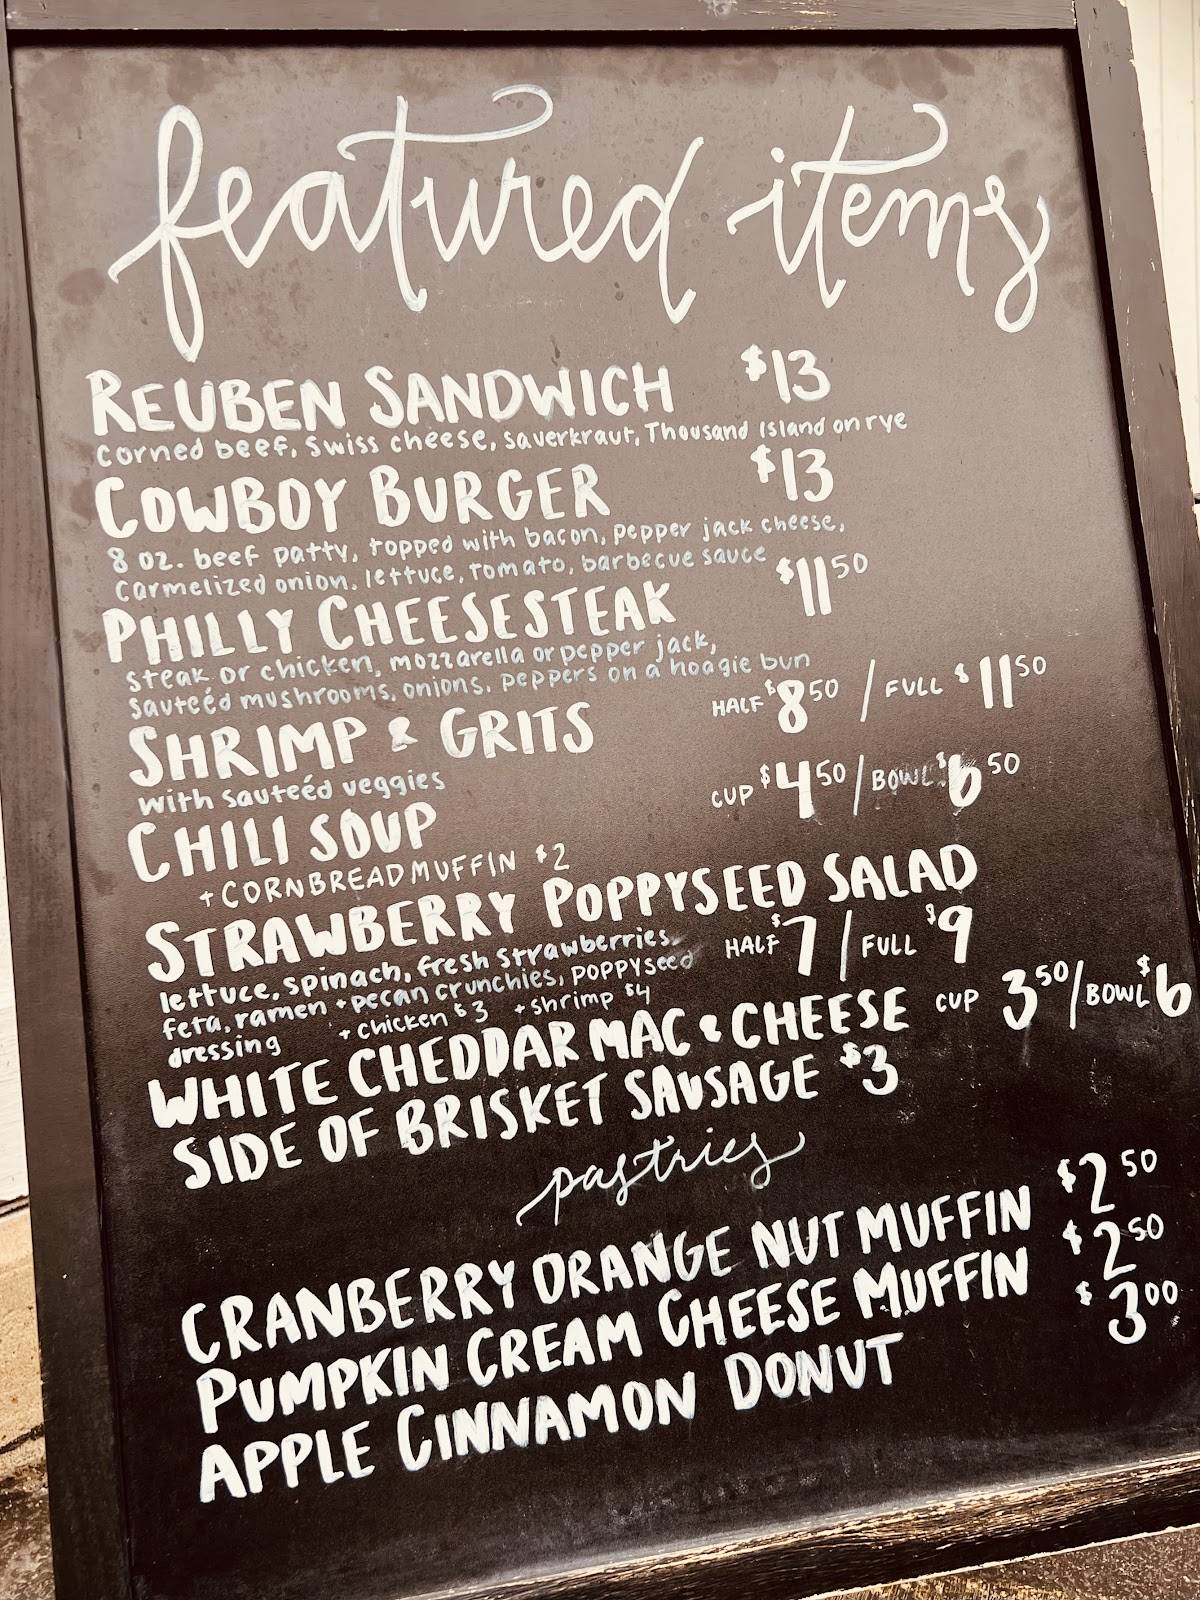 featured items
REUBEN SANDWICH $13
corned beef, swiss cheese, saverkraut, Thousand Island on rye
COWBOY BURGER $13
8 oz. beef patty, topped with bacon, pepper jack cheese,
carmelized onion, lettuce, tomato, barbecue sauce
PHILLY CHEESESTEAK $11 50
steak or chicken, mozzarella or pepper jack,
sauteéd mushrooms, onions, peppers on a hoagie bun
SHRIMP & GRITS HALF $8 50 / FULL $11 50
with sauteéd veggies
CHILI SOUP CUP $4 50 / BOWL $6 50
+ CORNBREAD MUFFIN $2
STRAWBERRY POPPYSEED SALAD
lettuce, spinach, fresh strawberries, HALF $7 / FULL $9
feta, ramen + pecan crunchies, poppyseed
dressing + chicken $3 + shrimp $4
WHITE CHEDDAR MAC & CHEESE CUP 3 50 / BOWL $6
SIDE OF BRISKET SAUSAGE $3
pastries
CRANBERRY ORANGE NUT MUFFIN $2 50
PUMPKIN CREAM CHEESE MUFFIN $2 50
APPLE CINNAMON DONUT $3 00